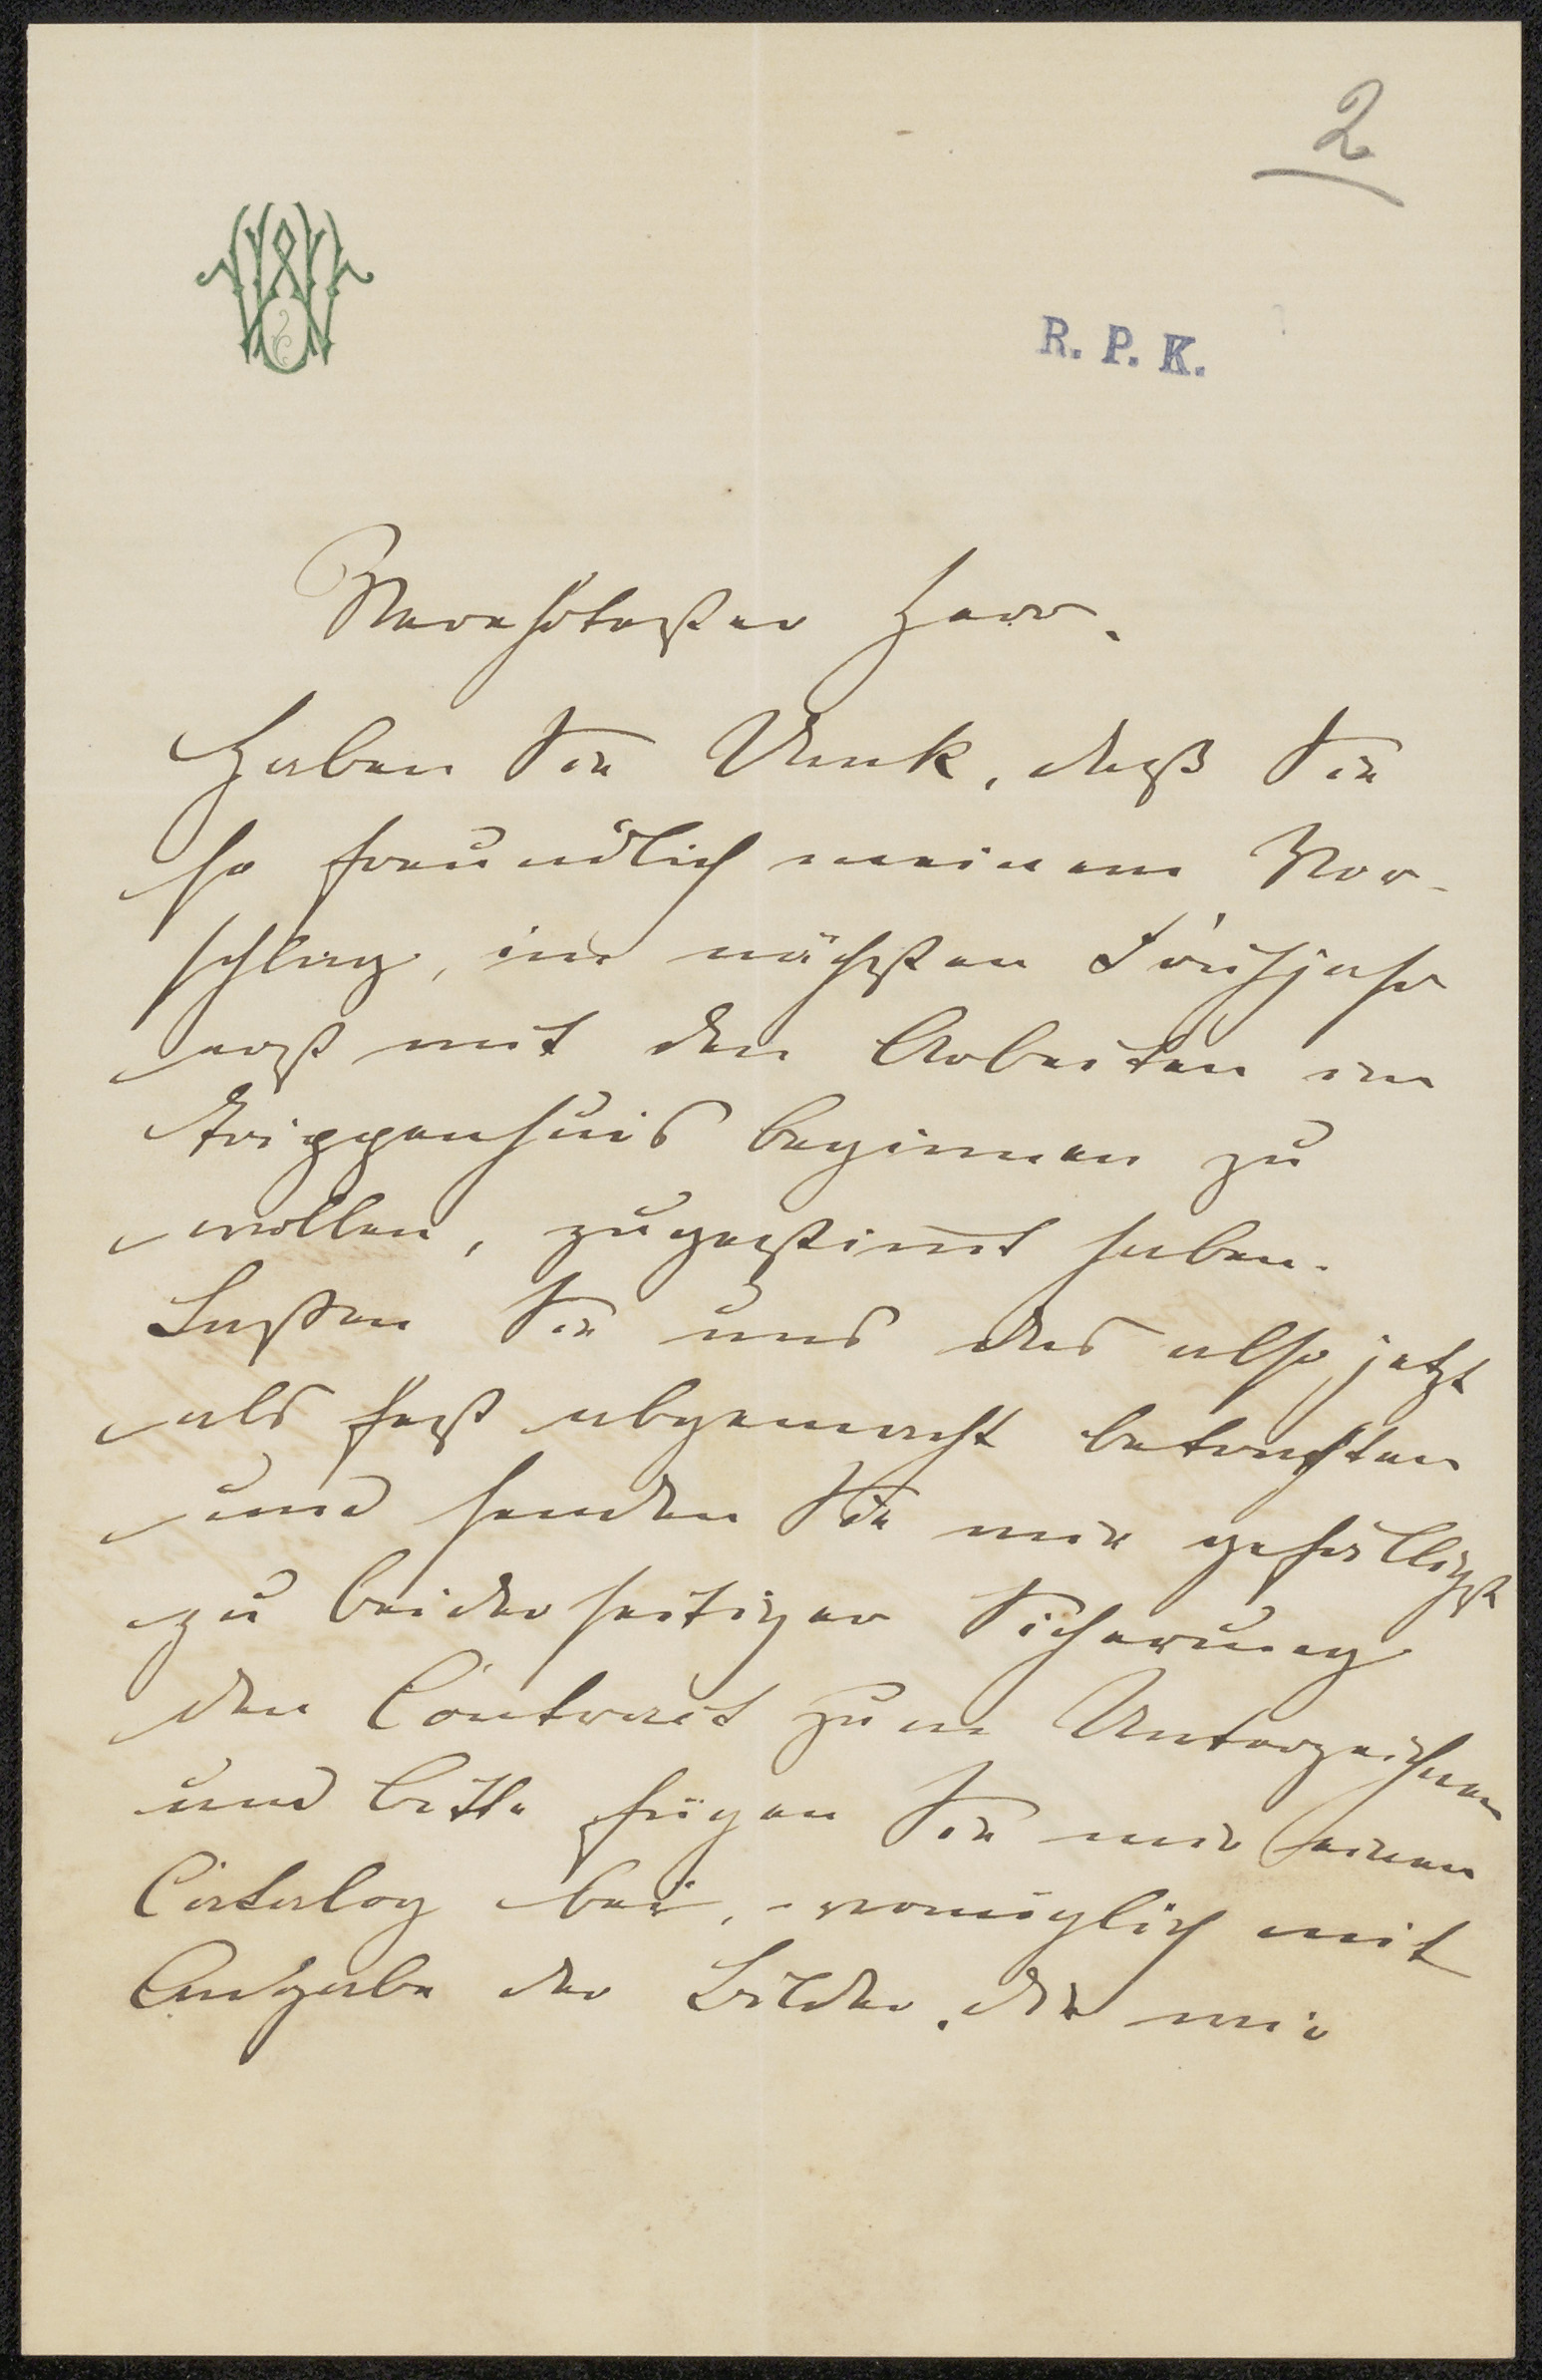 2
R. P. K.
Verehrtester Herr.
Haben Sie Dank, daß Sie
so freundlich meinem Vor-
schlag, im nächsten Frühjahr
erst mit den Arbeiten im
Trippenhuis beginnen zu
wollen, zugestimt haben.
Lassen Sie uns das also jetzt
als fest abgemacht betrachten
und senden Sie mir gefälligst
zu beiderseitiger Sicherung
den Contract zum Unterzeichnen
und bitte fügen Sie mir einen
Catalog bei, womöglich mit
Angabe der Bilder, die mir